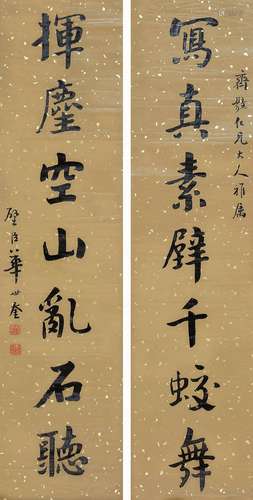 齊敬仁兄大人雅屬
寫真素壁千蛟舞
揮麈空山亂石聽
壁臣華世奎